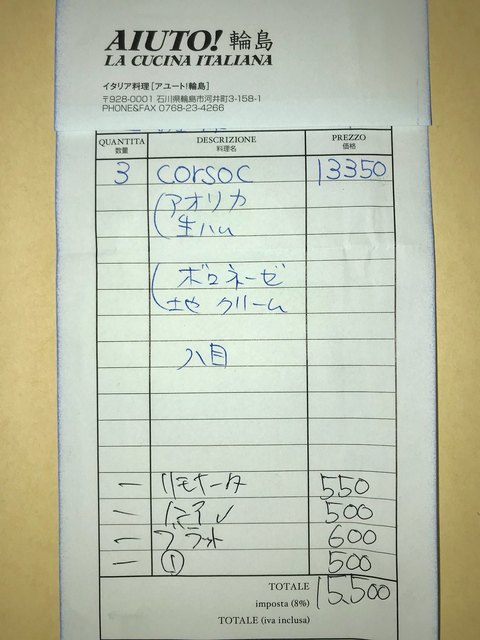 AIUTO! 輪島
LA CUCINA ITALIANA
イタリア料理 [アユート!輪島]
〒928-0001 石川県輪島市河井町3-158-1
PHONE&FAX 0768-23-4266
QUANTITA DESCRIZIONE PREZZO
数量 料理名 価格
3 corsoC 13350
アオリカ
生ハム
ボロネーゼ
クリーム
八目
一 リモナータ 550
一 500
一 ブラット 600
一 ① 500
TOTALE 15,500
imposta (8%)
TOTALE (iva inclusa)